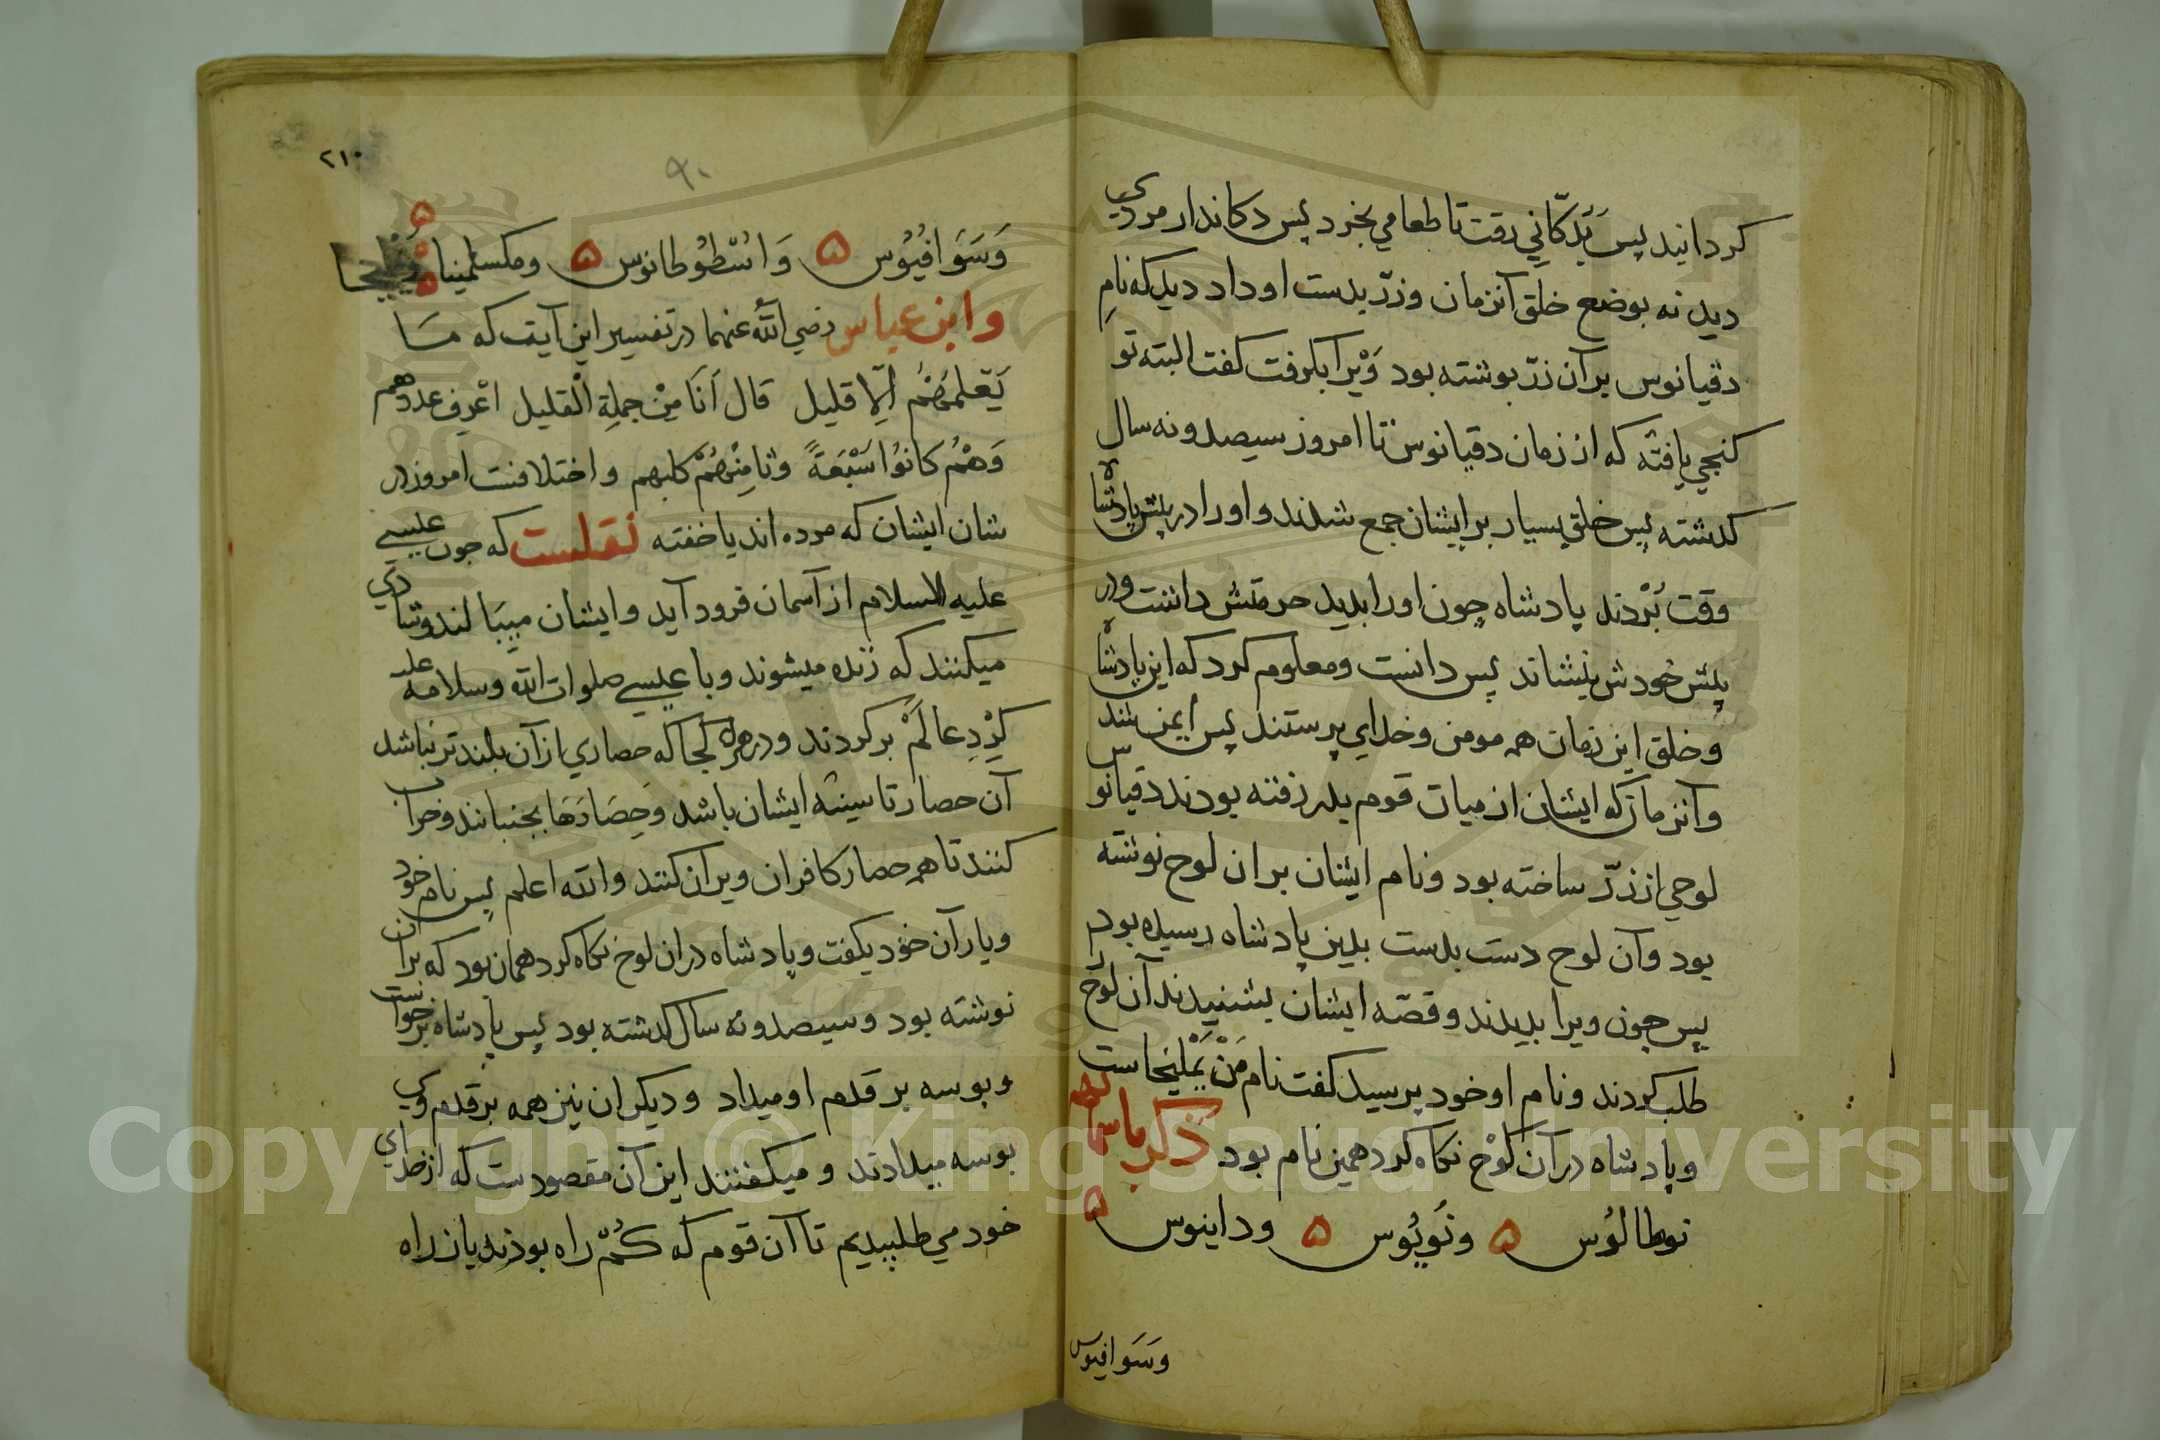 كردانيد پس بَدكّانِي رفت تا طعامي بخرد پس دكاندار مردي
ديد نه بوضع خلق آنزمان وزرّ بدست او داد ديد كه نامِ
دقيانوس بر آن زرّ بوشته بود وَيْرا بكرفت كفت البته تو
كنجي يافتۀ كه از زمان دقيانوس تا امروز سيصد و نه سال
كدشته پس خلق بسيار بر ايشان جمع شدند و او را در پيش پادشاه
وقت بُرْدند پادشاه چون او را بديد حرمتش داشت و در
پيش خودش بنشاند پس دانست و معلوم كرد كه اين پادشاه
و خلق اين زمان همه مومن و خداي پرستند پس ايمن شد
و آنزمان كه ايشان از ميان قوم بدر رفته بودند دقيانوس
لوحي از زرّ ساخته بود و نام ايشان بران لوح نوشته
بود و آن لوح دست بدست بدين پادشاه رسيده بود
پس چون ويرا بديدند و قصّه ايشان بشنيدند آن لوح
طلب كردند و نام او خود پرسيد كفت نام مَنْ يَمْليخاست
و پادشاه در آن لَوْح نكاه كرد همين نام بود ذكر باسمائهم
نوطالوُس ۵ ونُويُوس ۵ وداينوس ۵
وسَوافيوس
٢١٠
٩٠
وَسَوَافيُوُس ۵ وَاسْطُوُطانوس ۵ ومكسلمينا ۵ يمليخا ۵
وابن عباس رضي الله عنهما در تفسير اين آيت كه مَا
يَعْلَمُهُمْ اِلّا قليل قال اَنَا مِنْ جملةِ الْقليل اعْرِف عددهم
وَهُمْ كانُوُا سَبْعَةً وثامِنُهُمْ كلبهم و اختلافست امروز در
شان ايشان كه مرده اند يا خفته نقلست كه چون عليسي
عليه السلام از آسمان فرود آيد و ايشان ميبَالند و شادي
ميكنند كه زنده ميشوند و با عيسي صلوات الله وسلامه عليه
كِرْدِ عالَمْ بر كردند و در هر كجا كه حصاري از آن بلندتر نباشد
آن حصار تا سينۀ ايشان باشد وَحِصَارَهَا بجنبانند و خراب
كنند تا همه حصار كافران ويران كنند و الله اعلم پس نام خود
و يارآن خود بكفت و پادشاه در ان لوح نكاه كرد همان بود كه بر آن
نوشته بود و سيصد و نه سال كدشته بود پس پادشاه برخواست
و بوسه بر قدم او ميداد و ديكران نيز همه بر قدم وي
بوسه ميدادند و ميكفتند اين آن مقصودست كه از خداي
خود مي طلبيديم تا آن قوم كه كُمّ راه بودند يان راه